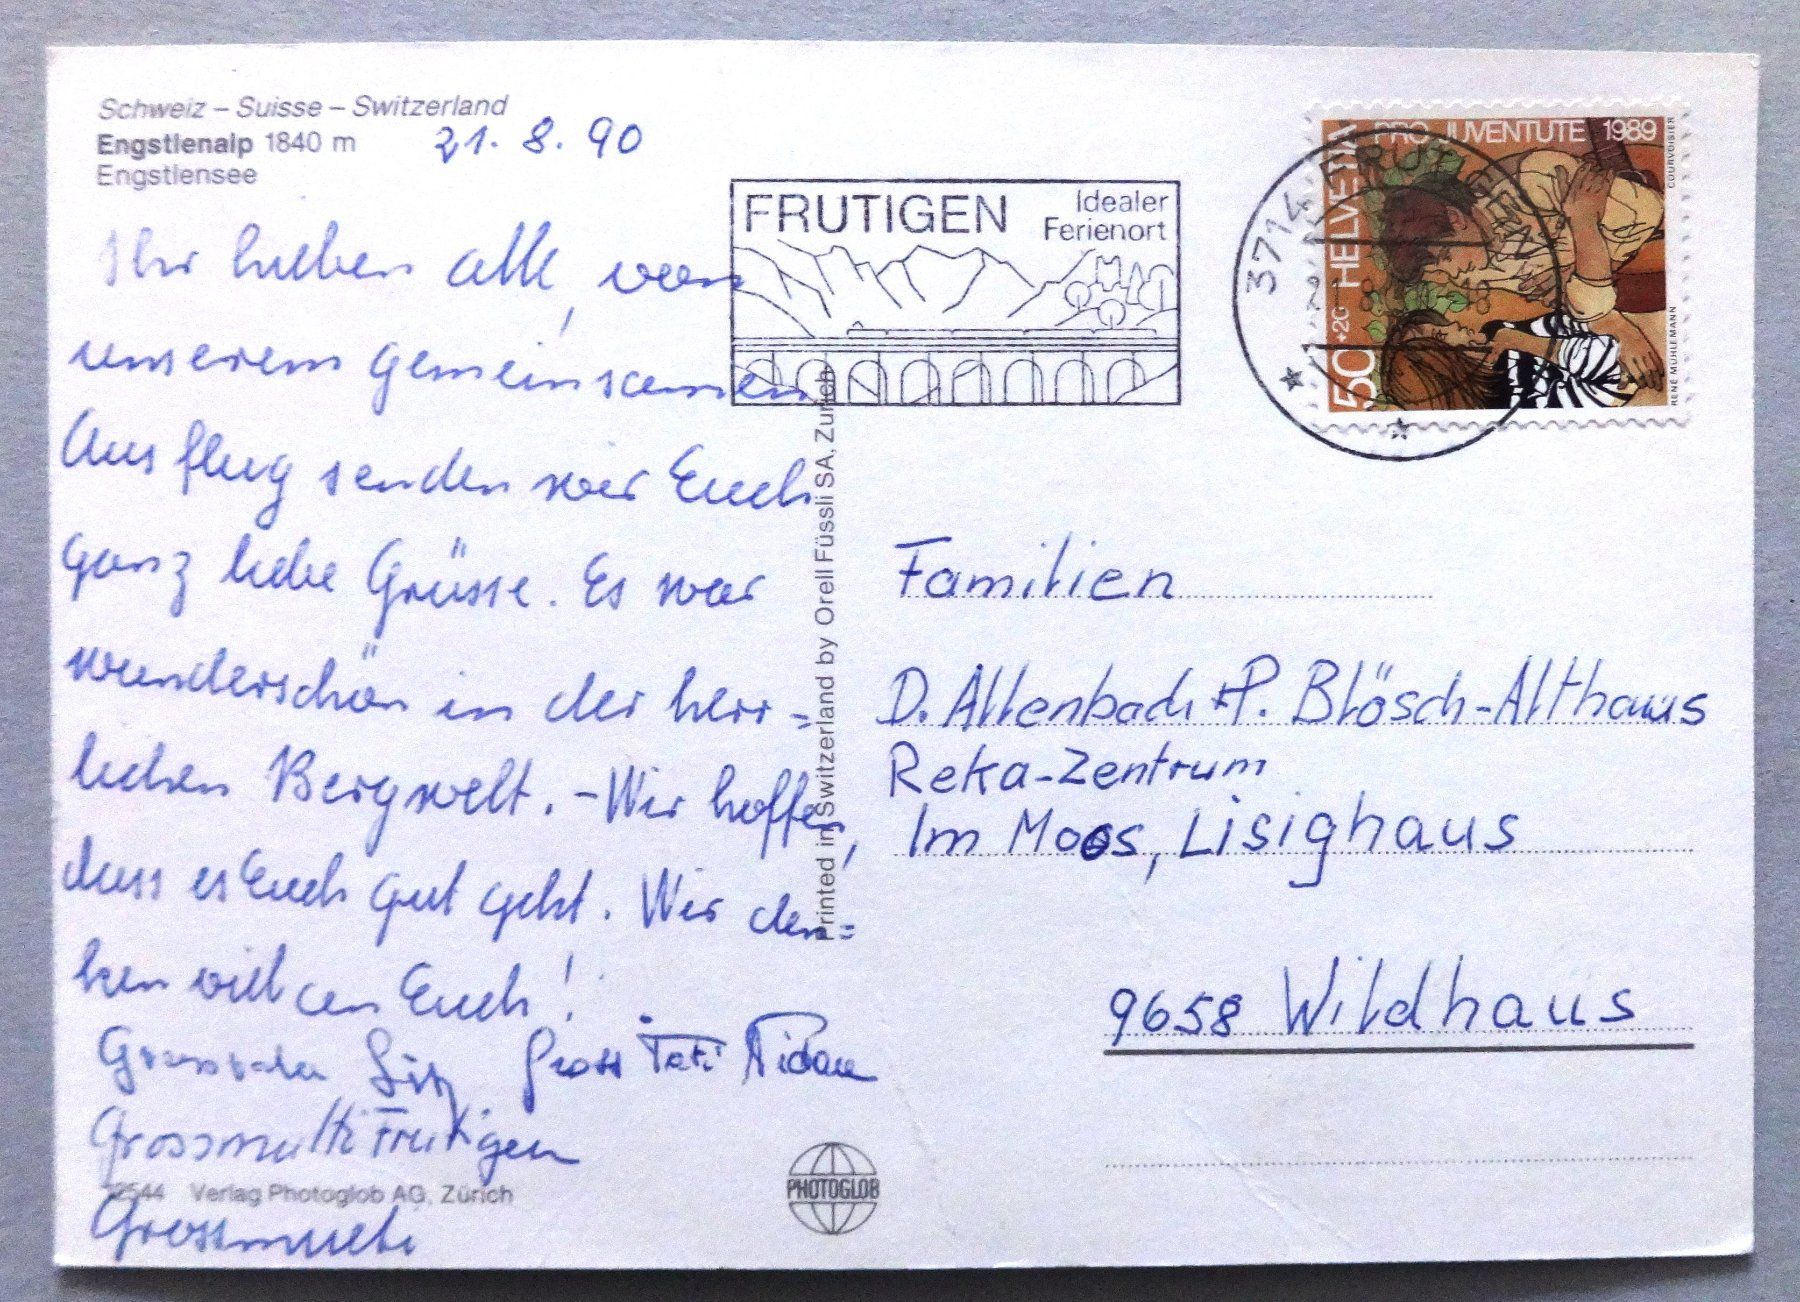 Schweiz – Suisse – Switzerland
Engstlenalp 1840 m
Engstlensee
21. 8. 90
Ihr lieben alle, von
unserem gemeinsamen
Ausflug senden wir Euch
ganz liebe Grüsse. Es war
wunderschön in der herr=
lichen Bergwelt. – Wir hoffen,
dass es Euch gut geht. Wir den=
ken viel an Euch!
Gross Nidau
Grossmutti Frutigen
Grossmueti
2544 Verlag Photoglob AG, Zürich
FRUTIGEN
Idealer
Ferienort
3714 FRUTIGEN
PRO JUVENTUTE 1989
HELVETIA
50+20
COURVOISIER
RENÉ MÜHLEMANN
Printed in Switzerland by Orell Füssli SA, Zurich
Familien
D. Allenbach + P. Blösch-Althaus
Reka-Zentrum
Im Moos, Lisighaus
9658 Wildhaus
PHOTOGLOB